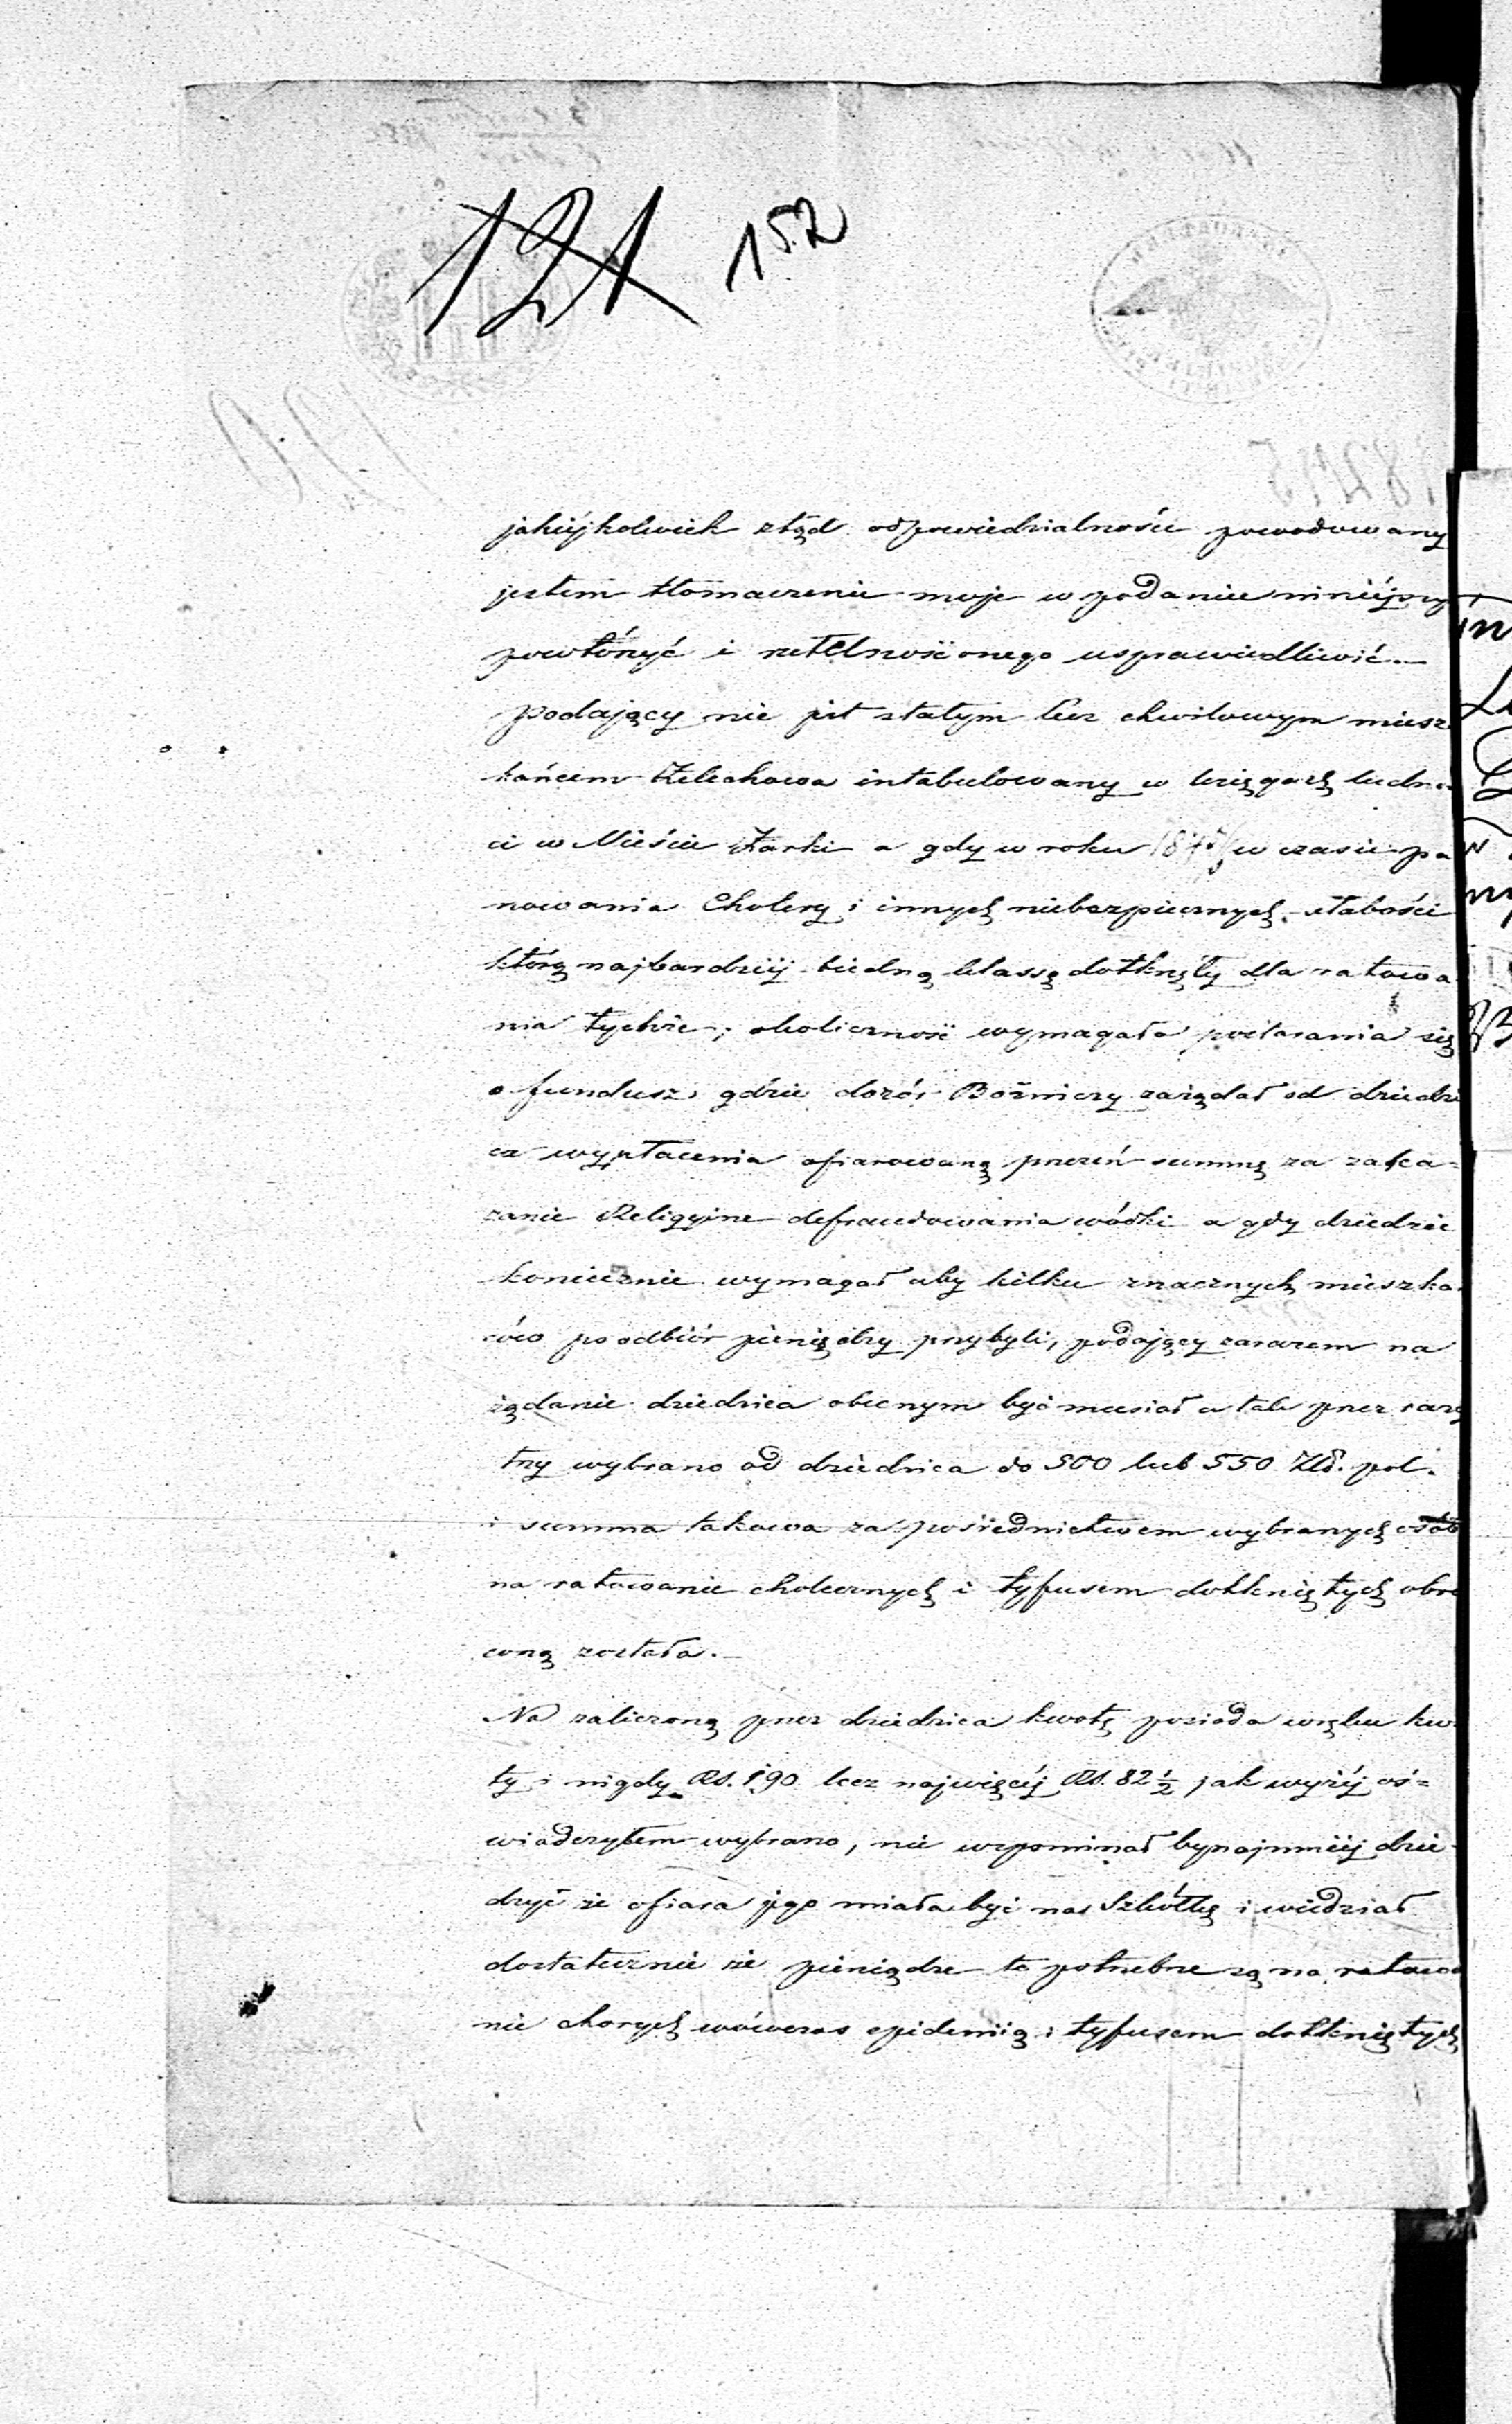 121 152
jakiéjkolwiek ztąd odpowiedzialności powodowany
jestem tłomaczenie moje w podanie niniéjszy
powtórzyć i rzetelność onego usprawiedliwić.—
Podający nie jest stałym lecz chwilowym miesz
kańcem Żelechowa intabulowany w księgach ludno
ci w Mieście Żarki a gdy w roku 184⁸/₉ w czasie pa
nowania Cholery i innych niebezpiecznych słabości
którą najbardziéj biedną klassę dotknęły dla ratowa
nia tychże, okoliczność wymagała postarania się
o fundusz, gdzie dozór Bożniczy zażądał od dziedzi
ca wypłacenia ofiarowaną przezeń summę za zaka=
zanie Religijne defraudowania wódki a gdy dziedzic
koniecznie wymagał aby kilku znacznych mieszka
ców po odbiór pieniędzy przybyli, podający zarazem na
żądanie dziedzica obecnym być musiał a tak przez razy
trzy wybrano od dziedzica do 500 lub 550 Złp. pol.
i summa takowa za pośrednictwem wybranych osób
na ratowanie cholernych i tyfusem dotkniętych obró
coną została.—
Na zaliczoną przez dziedzica kwotę posiada kwi
ty i nigdy Rs. 190 lecz najwięcéj Rs. 82 ½ jak wyżéj oś=
wiadczyłem wybrano, nie wspominał bynajmniéj dzie
dzyc że ofiara jego miała być na Szkółkę i wiedział
dostatecznie że pieniądze te potrzebne są na ratowa
nie chorych wówczas epidemią i tyfusem dotkniętych